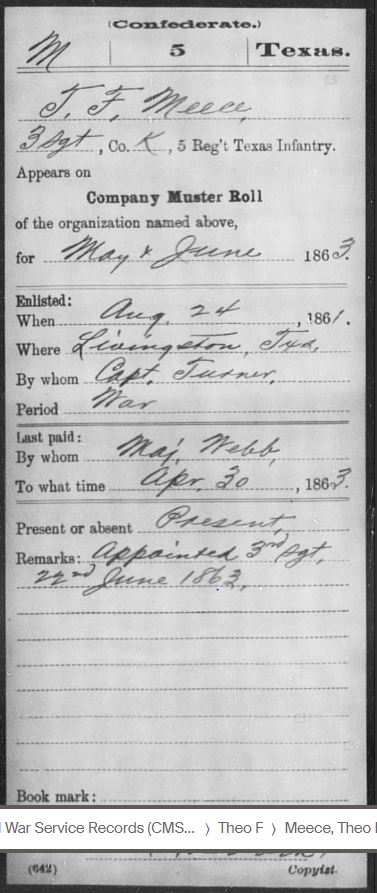 (Confederate.)
M 5 Texas.
T. F. Meece,
3 Sgt, Co. K, 5 Reg't Texas Infantry.
Appears on
Company Muster Roll
of the organization named above,
for May & June 1863.
Enlisted:
When Aug. 24, 1861.
Where Livingston, Txs,
By whom Capt. Turner,
Period War
Last paid:
By whom Maj. Webb,
To what time Apr. 30, 1863.
Present or absent Present,
Remarks: Appointed 3rd Sgt,
22nd June 1863,
Book mark:
War Service Records (CMS... 〉 Theo F 〉 Meece, Theo
(642) Copyist.